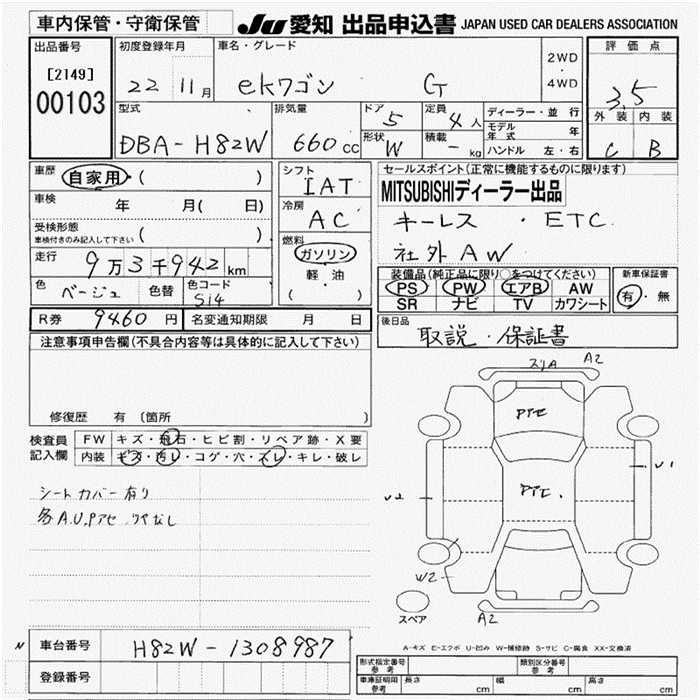 車内保管・守衛保管 JU 愛知 出品申込書 JAPAN USED CAR DEALERS ASSOCIATION
出品番号 初度登録年月 車名・グレード 2WD・4WD 評価点
[2149] 00103 22 11月 ekワゴン G 3.5
型式 排気量 ドア 5 定員 4人 ディーラー・並行 外装 内装
DBA-H82W 660cc 形状 W 積載 - kg モデル年式 年 C B
ハンドル 左・右
車歴 自家用・( ) シフト IAT セールスポイント(正常に機能するものに限ります)
車検 年 月( 日) 冷房 AC MITSUBISHIディーラー出品
受検形態 車検付きのみ記入して下さい ( ) 燃料 ガソリン・軽油 ( ・ ) キーレス・ETC
走行 9万3千942km 社外AW
色 ベージュ 色替 色コード S14 装備品(純正品に限り○をつけてください) 新車保証書
PS PW エアB AW 有・無
SR ナビ TV カワシート
R券 9460円 名変通知期限 月 日 後日品
取説・保証書
注意事項申告欄(不具合内容等は具体的に記入して下さい)
修復歴 有 (箇所 )
検査員記入欄 FW キズ・飛石・ヒビ割・リペア跡・X要
内装 キズ・汚レ・コゲ・穴・スレ・キレ・破レ
シートカバー有り
各A.U.Pアセ
スリA A2
Pアセ
Pアセ.
U2 U1
W2
スペア A2
A-キズ E-エクボ U-凹み W-補修跡 S-サビ C-腐食 XX-交換済
N 車台番号 H82W-1308987
登録番号
形式指定番号 参考 類別区分番号 参考
車庫証明用 参考 長さ cm 幅 cm 高さ cm